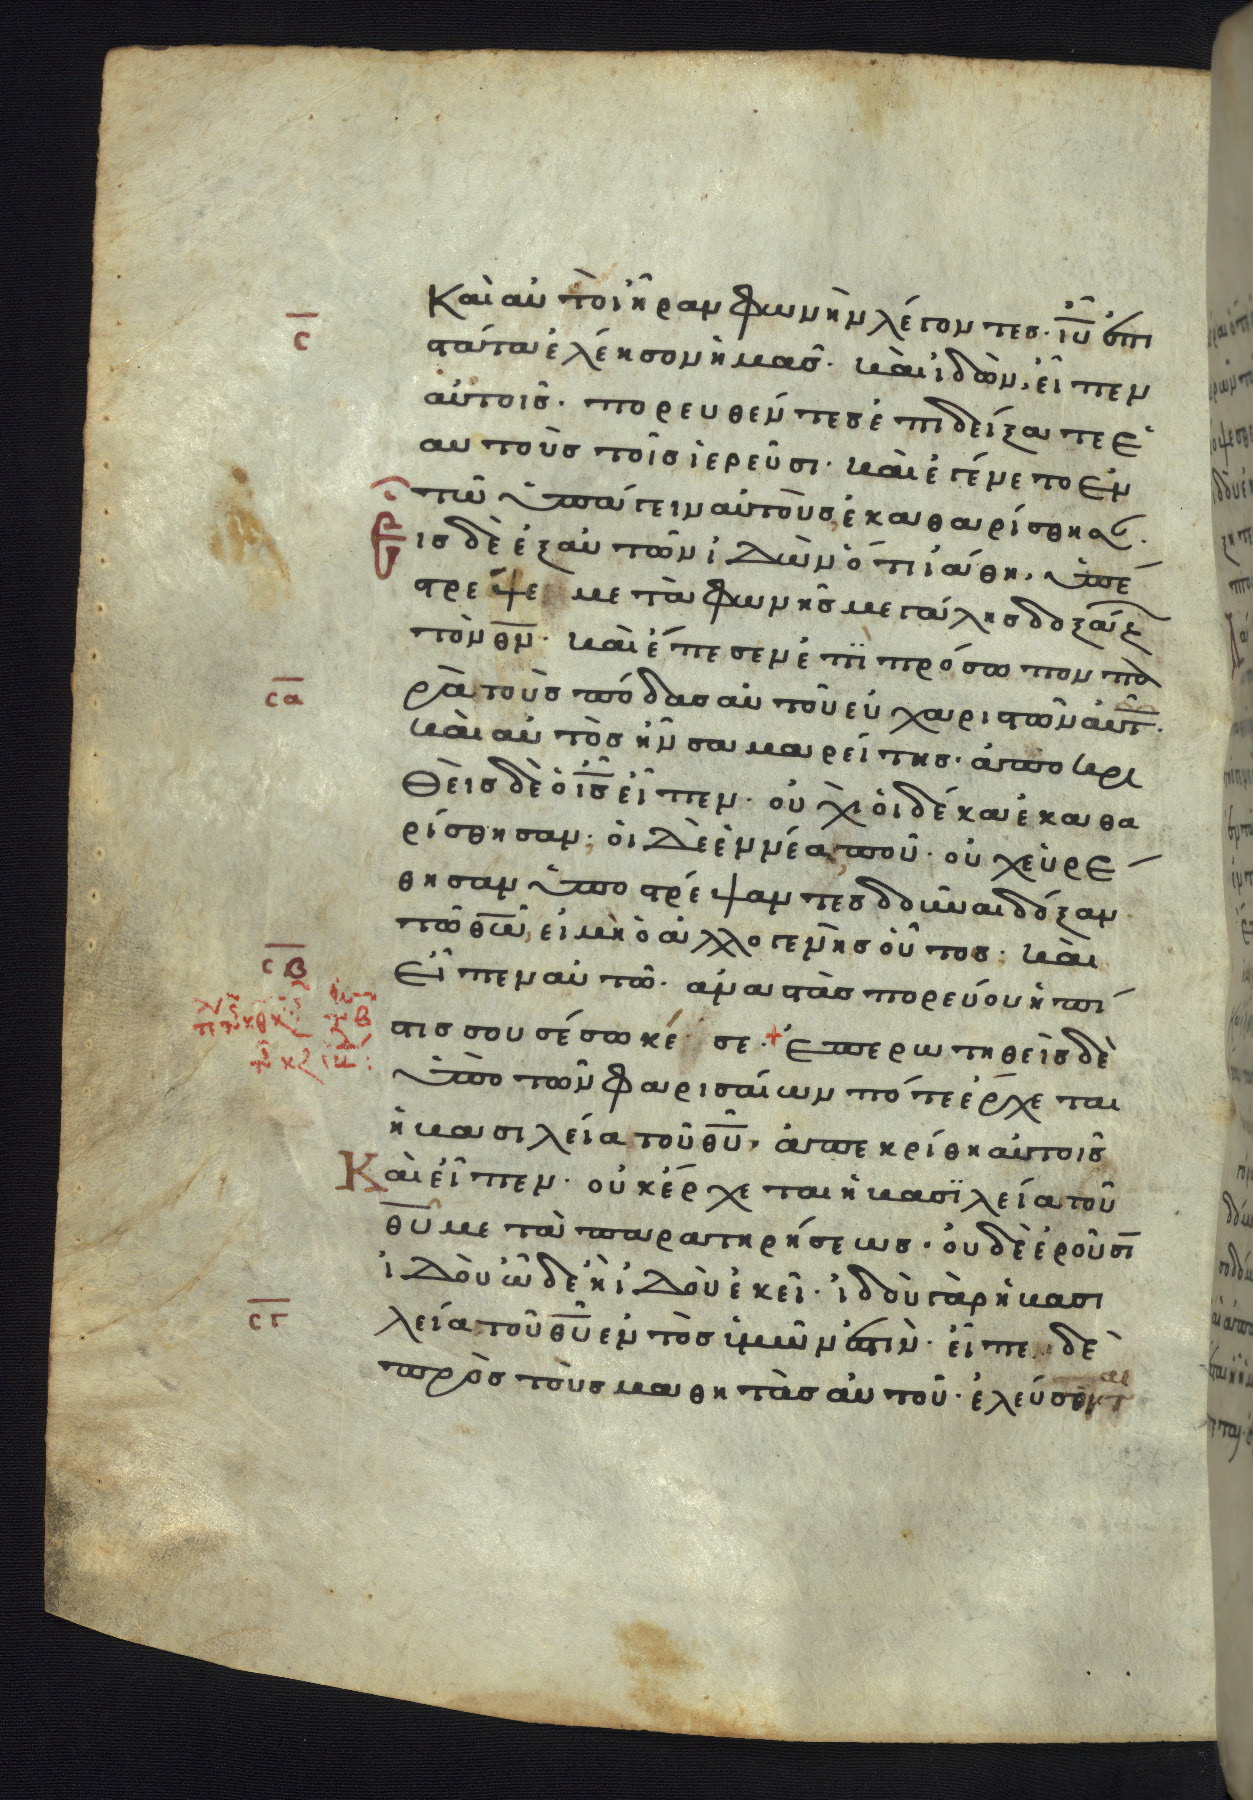 ϲ
Καὶ αὐτοὶ ἦραν φωνὴν λέγοντες· ἰῦ ἐπι
στάτα ἐλέησον ἡμᾶς· καὶ ἰδὼν, εἶπεν
αὐτοῖς· πορευθέντες ἐπιδείξατε ἑ
αυτοὺς τοῖς ἱερεῦσι· καὶ ἐγένετο ἐν
τῶ ὑπάγειν αὐτοὺς, ἐκαθαρίσθησαν·
Εἷς δὲ ἐξ αὐτῶν ἰδὼν ὅτι ἰάθη, ὑπέ
στρεψε μετὰ φωνῆς μεγάλης δοξάζων
τὸν θν· καὶ ἔπεσεν ἐπὶ πρόσωπον πα
ϲα
ρὰ τοὺς πόδας αὐτοῦ εὐχαριστῶν αὐτῶ·
καὶ αὐτὸς ἦν σαμαρείτης· ἀποκρι
θεὶς δὲ ὁ ἰς εἶπεν· οὐχὶ οἱ δέκα ἐκαθα
ρίσθησαν· οἱ δὲ ἐννέα ποῦ· οὐχ εὑρέ
θησαν ὑποστρέψαντες δοῦναι δόξαν
τῶ θῶ, εἰ μὴ ὁ ἀλλογενὴς οὗτος· καὶ
ϲβ
εἶπεν αὐτῶ· ἀναστὰς πορεύου ἡ πί
στις σου σέσωκέ σε· + ἐπερωτηθεὶς δὲ
ὑπὸ τῶν φαρισαίων πότε ἔρχεται
ἡ βασιλεία τοῦ θῦ, ἀπεκρίθη αὐτοῖς
Καὶ εἶπεν· οὐκ ἔρχεται ἡ βασϊλεία τοῦ
θῦ μετὰ παρατηρήσεως· οὐδὲ ἐροῦσι
ἰδοὺ ὧδε ἢ ἰδοὺ ἐκεῖ· ἰδοὺ γὰρ ἡ βασι
ϲγ
λεία τοῦ θῦ ἐντὸς ὑμῶν ἐστὶν· εἶπε δὲ
πρὸς τοὺς μαθητὰς αὐτοῦ· ἐλεύσοντ
αι